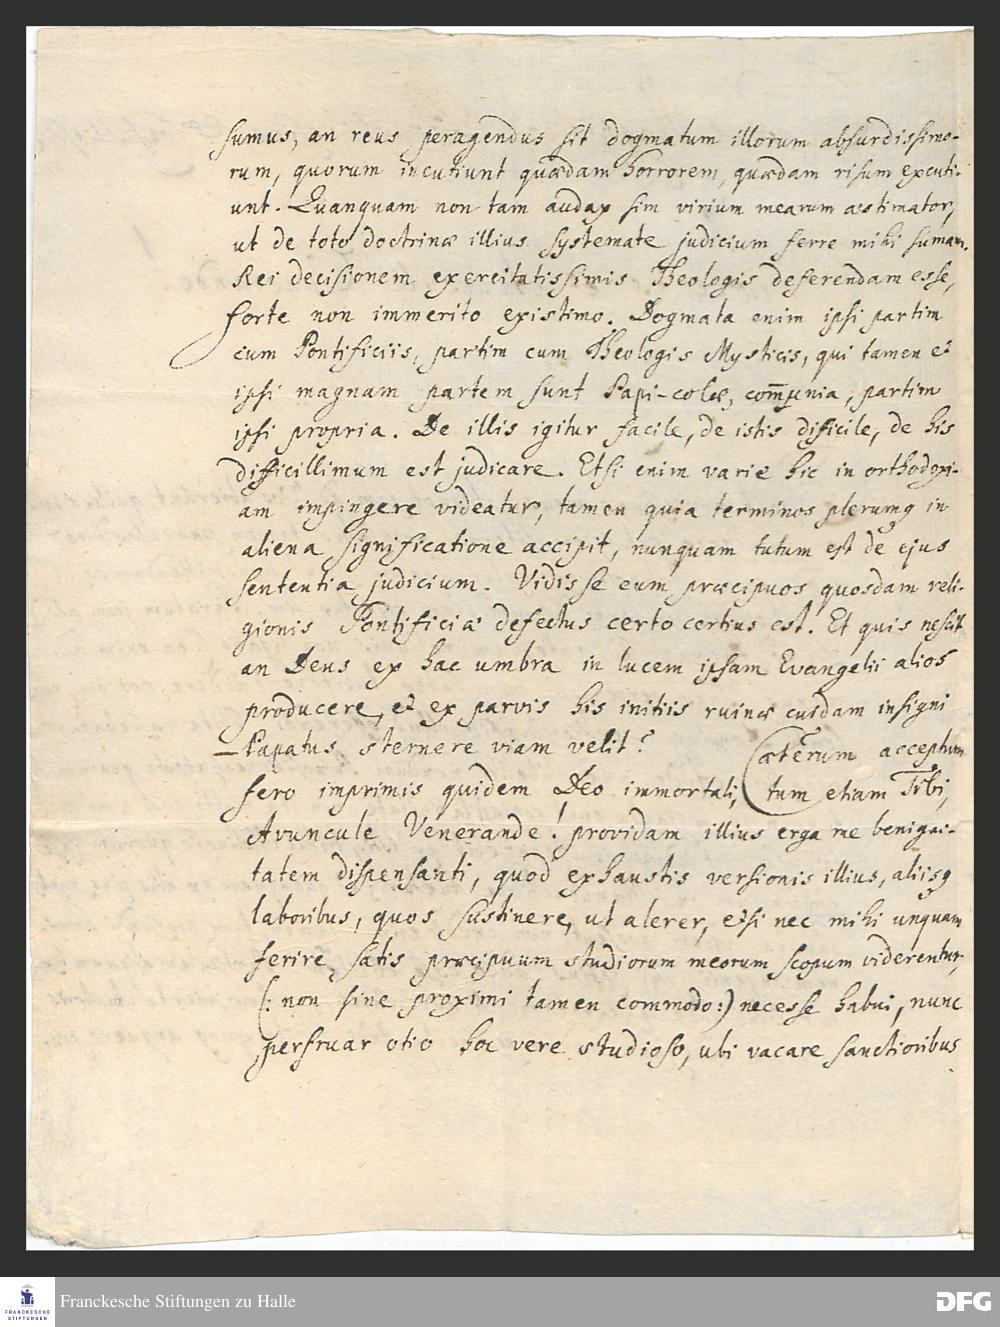 sumus, an reus peragendus sit dogmatum illorum absurdissimo-
rum, quorum incutiunt quædam horrorem, quædam risum excuti-
unt. Quanquam non tam audax sim virium mearum æstimator,
ut de toto doctrinæ illius systemate judicium ferre mihi sumam.
Rei decisionem exercitatissimis Theologis deferendam esse,
forte non immerito existimo. Dogmata enim ipsi partim
cum Pontificiis, partim cum Theologis Mysticis, qui tamen et
ipsi magnam partem sunt Papi-colæ, com̄unia, partim
ipsi propria. De illis igitur facile, de istis dificile, de his
difficillimum est judicare. Etsi enim varie hic in orthodoxi-
am impingere videatur, tamen quia terminos plerumq in
aliena significatione accipit, nunquam tutum est de ejus
sententia judicium. Vidisse eum præcipuos quosdam reli-
gionis Pontificiæ defectus certo certius est. Et quis nescit
an Deus ex hac umbra in lucem ipsam Evangelii alios
producere, et ex parvis his initiis ruinæ cuidam insigni
Papatus sternere viam velit? Cæterum acceptum
fero imprimis quidem Deo immortali, tum etiam Tibi,
Avuncule Venerande! providam illius erga me benigni-
tatem dispensanti, quod exhaustis versionis illius, aliisq
laboribus, quos sustinere, ut alerer, etsi nec mihi unquam
ferire satis præcipuum studiorum meorum scopum viderentur,
(: non sine proximi tamen commodo:) necesse habui, nunc
perfruar otio hoc vere studioso, ubi vacare sanctioribus
Franckesche Stiftungen zu Halle
FRANCKESCHE
STIFTUNGEN
DFG